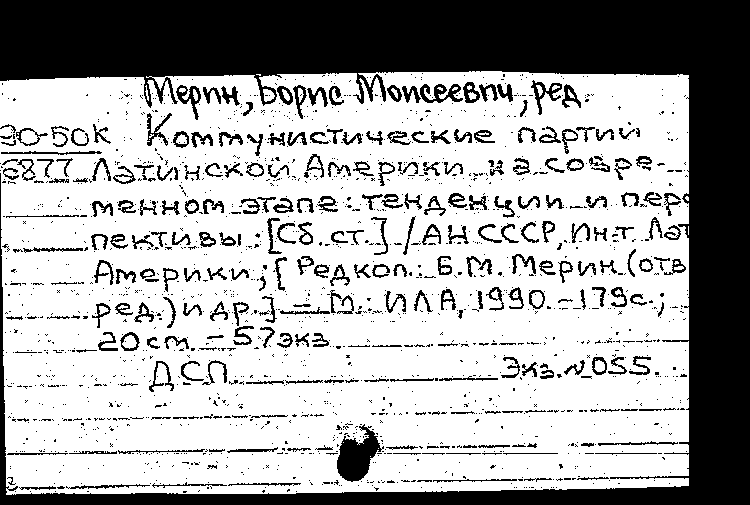 Мерин, Борис Моисеевич, ред.
90-50К Коммунистические партии
6877 Латинской Америки на совре-
менном этапе: тенденции и перс
пективы: [Сб. ст.] / АН СССР, Ин-т Лат
Америки; [Редкол.: Б.М. Мерин (отв
ред.) и др.] – М.: ИЛА, 1990. – 179с.;
20 cm. – 57 экз.
ДСП Экз. N 055.